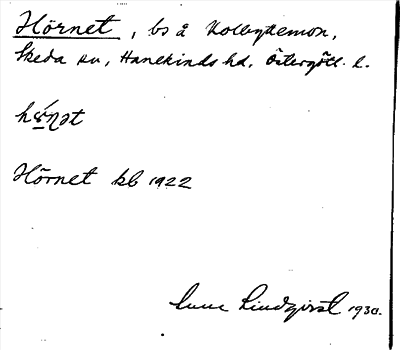 Hörnet, bs å Kolbyttemon,
Skeda sn, Hanekinds hd, Östergötl. l.
Hörnet kb 1922
Lindqvist 1930.